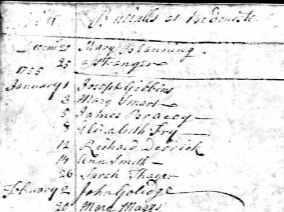 Burialls at Bedminster
Decem: 20 Mary Blanning
25 a Stranger
1755
January 1 Joseph Gibbins
3 Mary Smart
5 James Bracey
8 Elizabeth Fry
12 Richard Derrick
14 Ann Smith
26 Sarah Thayer
February 2 John Golidge
20 Mary Maggs